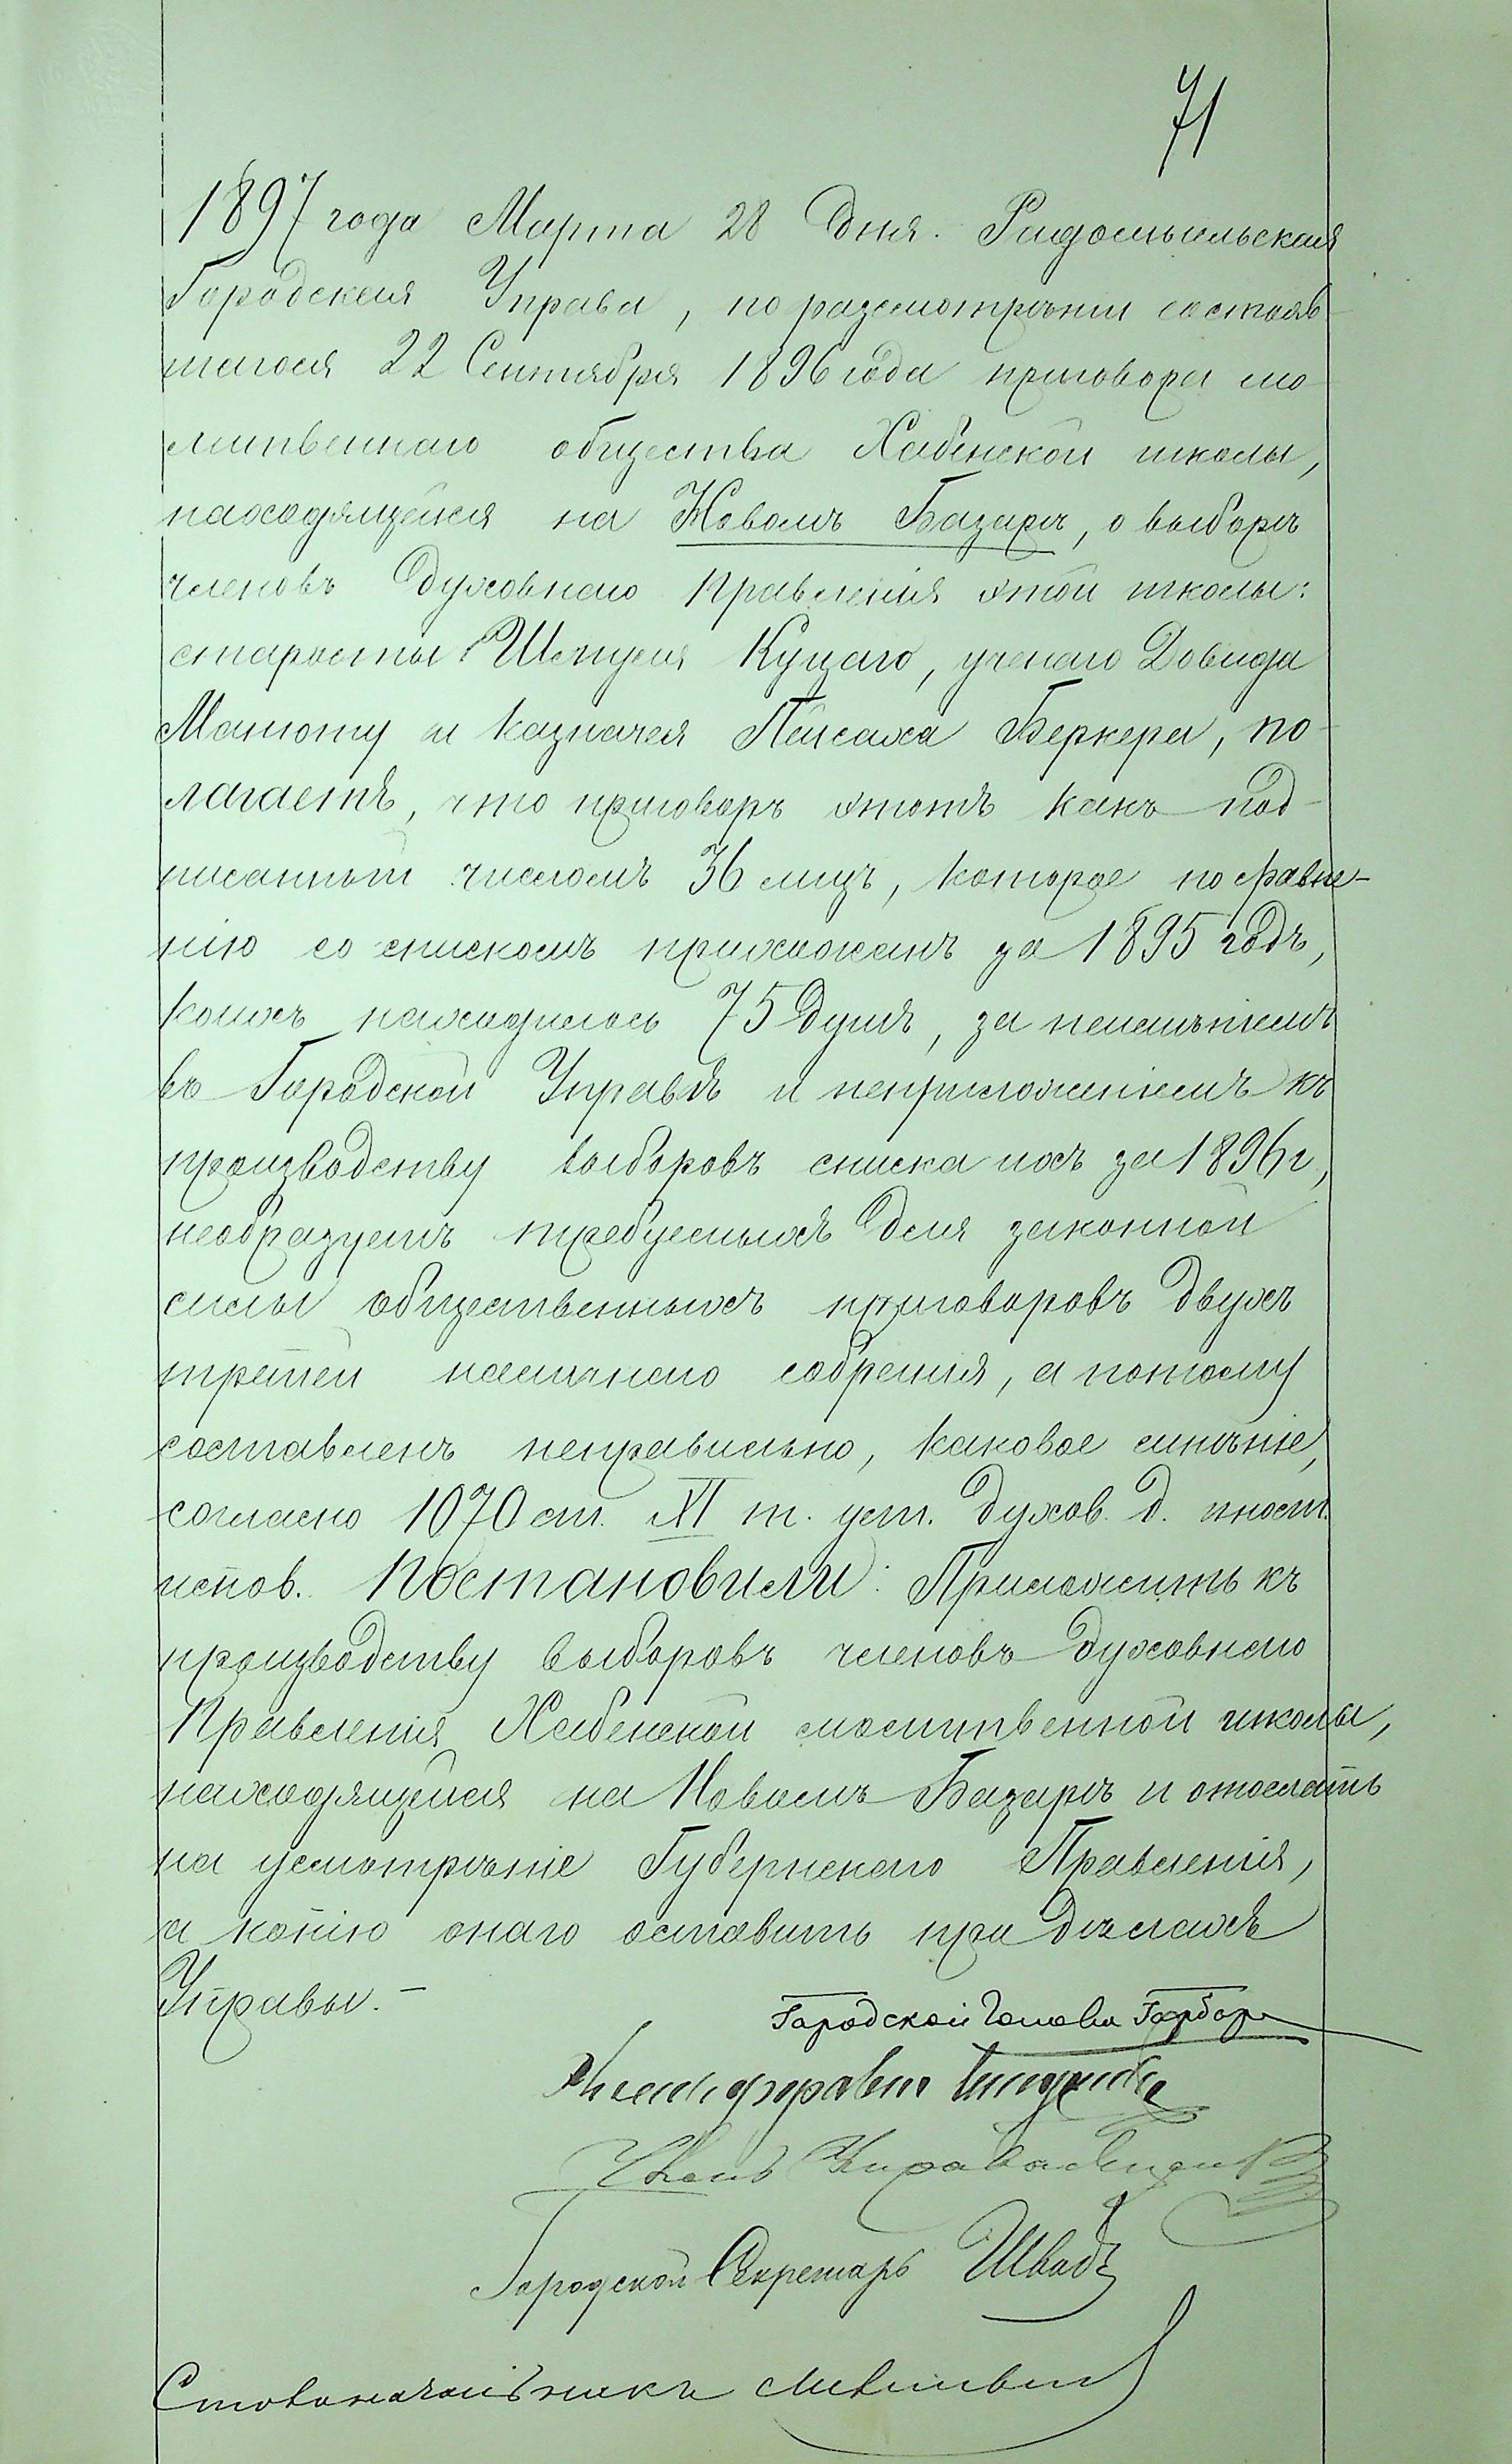 71
1897 года Марта 28 дня. Радомысльская
Городская Управа, по разсмотрѣнии состояв-
шагося 22 Сентября 1896 года приговора мо-
литвеннаго общества Хабенской школы,
находящейся на Новомъ Базарѣ, о выборѣ
членовъ духовнаго правленія этой школы:
старосты Куцаго, ученаго Довида
Манюту и казначея Пейсаха Беркера, по-
лагаетъ, что приговоръ этотъ какъ под-
писанный числомъ 36 лицъ, которое по сравне-
нію со спискомъ прихожанъ за 1895 годъ,
коихъ находилось 75 душъ, за неимѣніемъ
въ Городской Управѣ и неприложеніемъ къ
производству выборовъ списка ихъ за 1896 г.,
необразуетъ требуемыхъ для законной
силы общественныхъ приговоровъ двухъ
третей наличнаго собранія, а потому
составленъ неправильно, каковое мнѣніе,
согласно 1070 ст. XI т. уст. духов. д. иност.
испов. Постановили: Приложить къ
производству выборовъ членовъ духовнаго
Правленія Хабенской молитвенной школы,
находящейся на Новомъ Базарѣ и отослать
на усмотрѣніе Губернскаго Правленія,
а копію онаго оставить при дѣлахъ
Управы.-
Городской Голова Гарбар
Члены
Членъ
Городской Секретарь Швабъ
Столоначальникъ